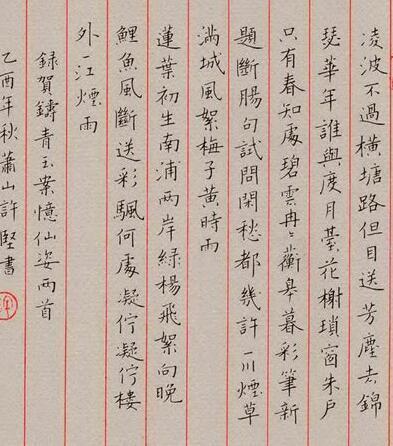 凌波不過橫塘路但目送芳塵去錦
瑟華年誰與度月臺花榭瑣窗朱戶
只有春知處碧雲冉冉蘅皋暮彩筆新
題斷腸句試問閑愁都幾許一川煙草
滿城風絮梅子黃時雨
蓮葉初生南浦兩岸綠楊飛絮向晚
鯉魚風斷送彩颿何處凝佇凝佇樓
外一江煙雨
錄賀鑄青玉案憶仙姿兩首
乙酉年秋蕭山許堅書